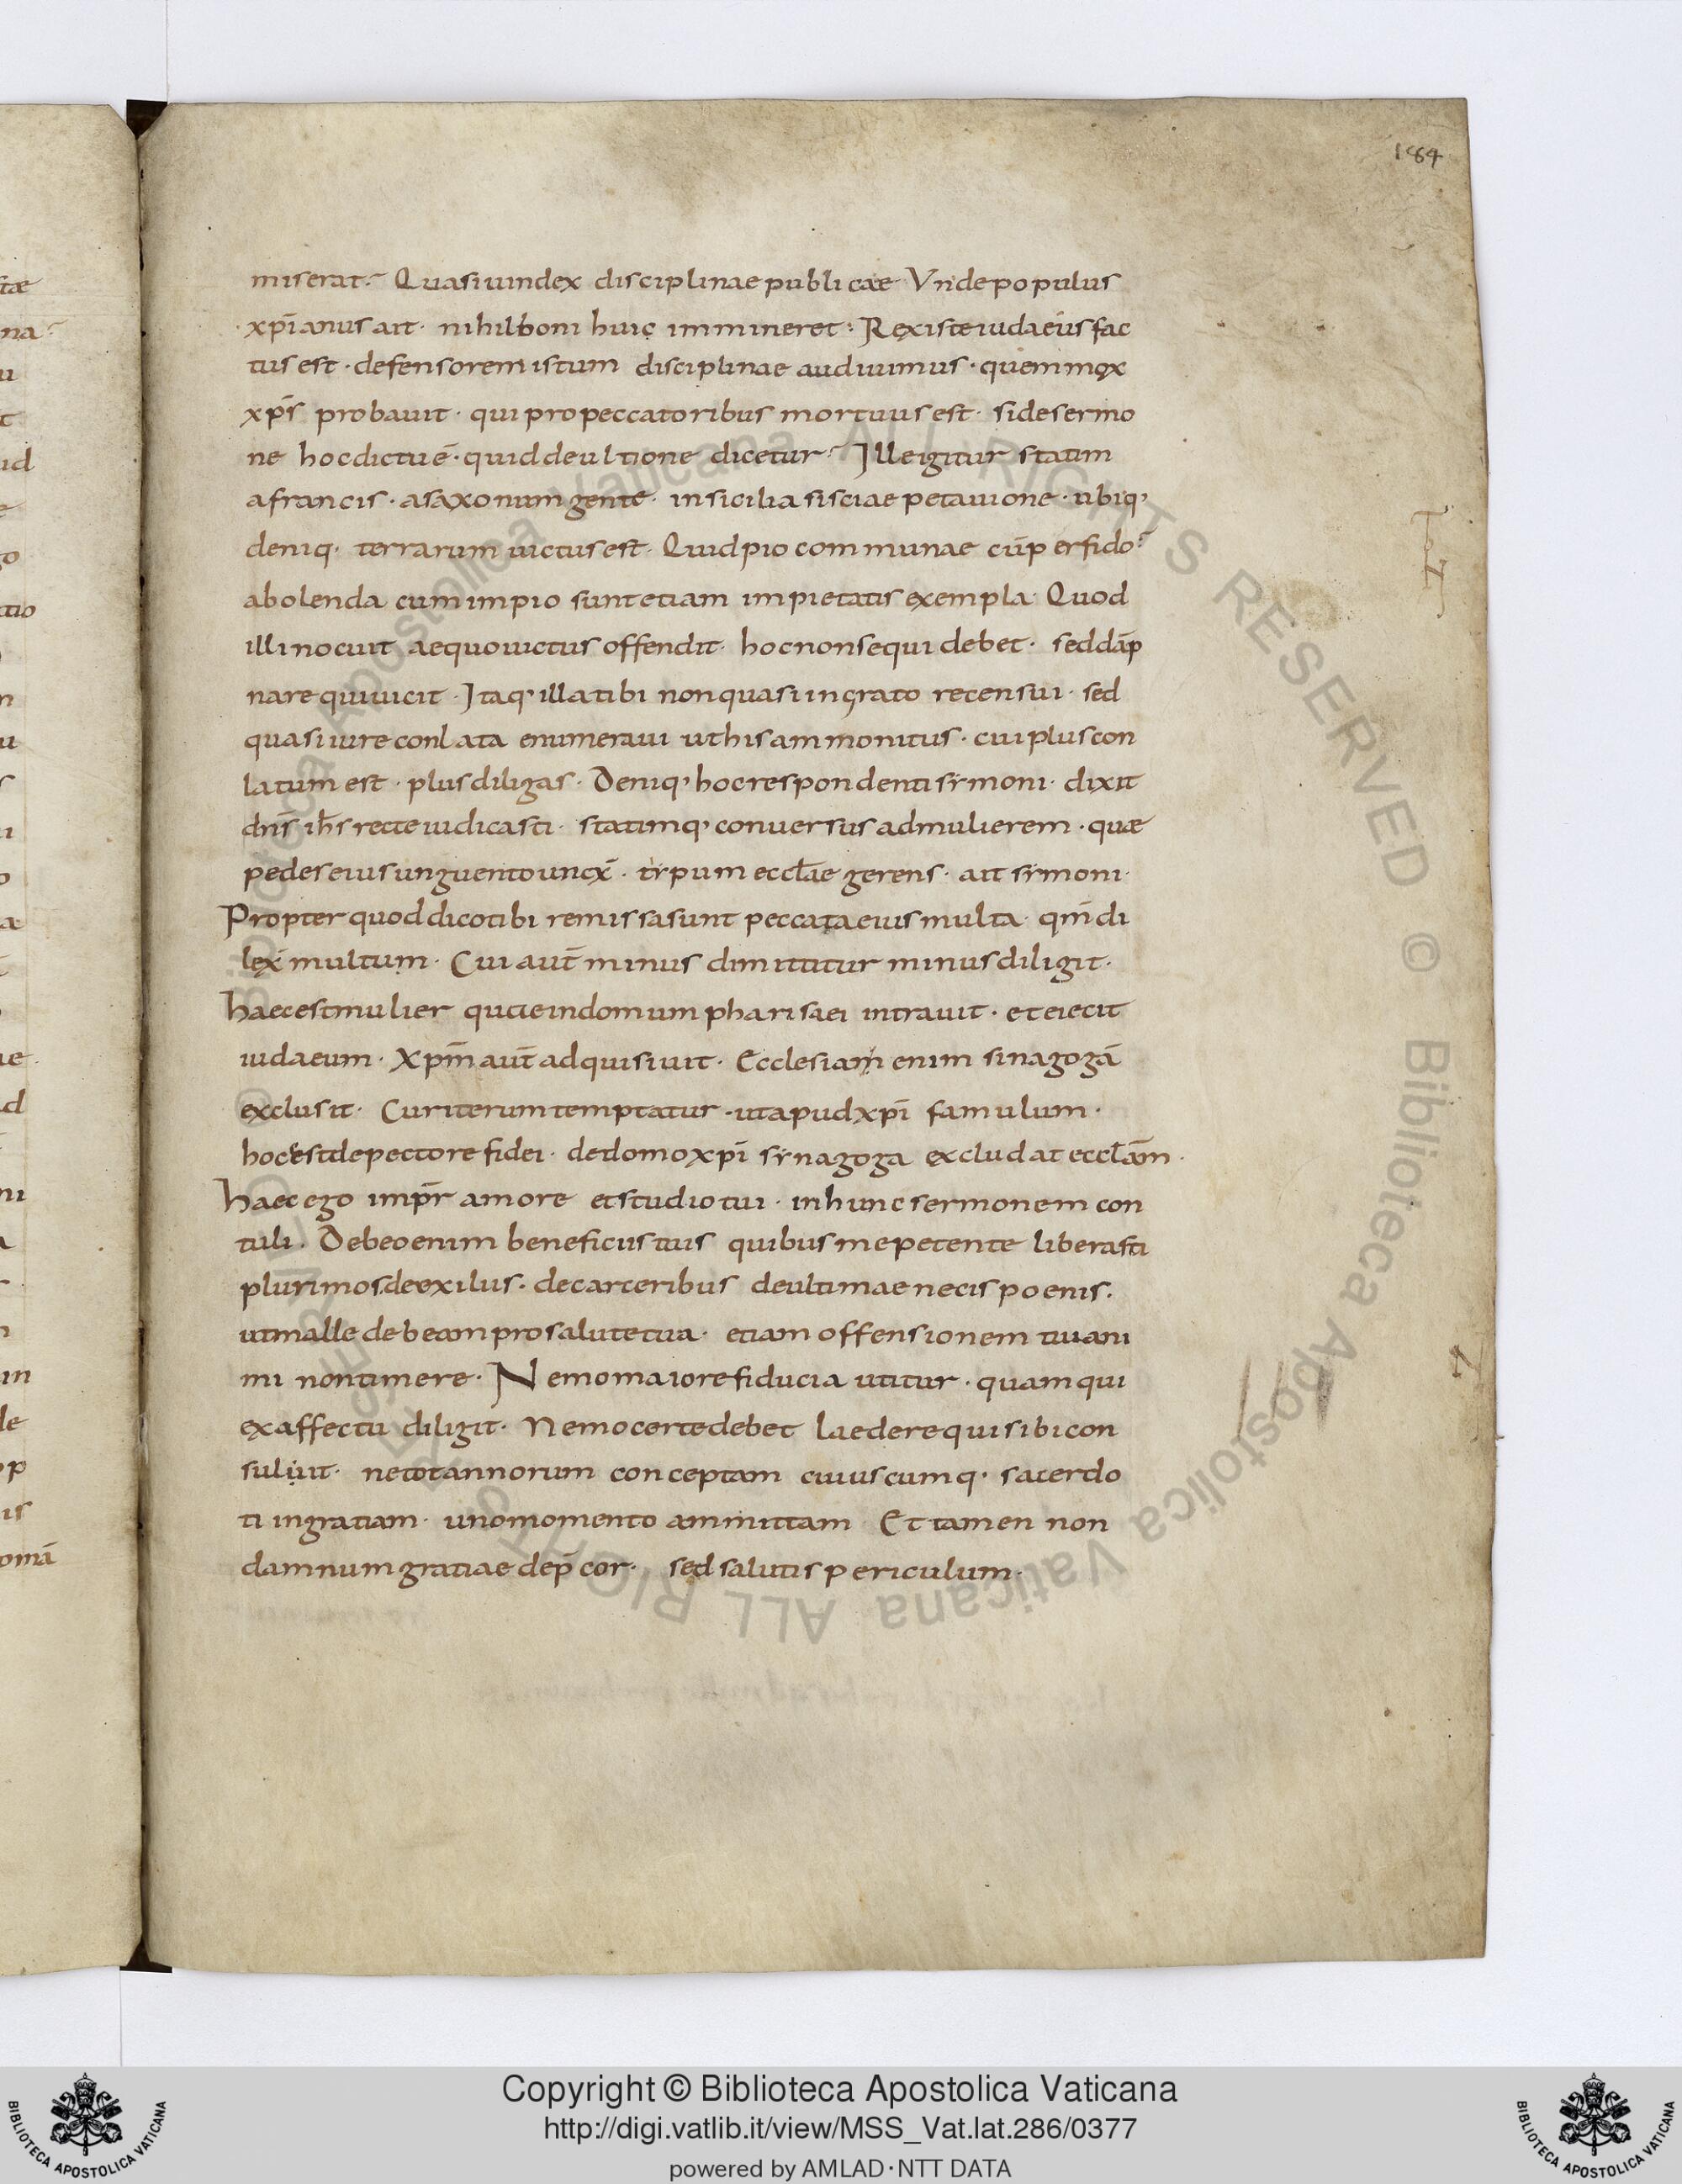 184
miserat? Quasi uindex disciplinae publicae Vnde populus
xp̄ianus ait · nihil boni huic immineret: Rex iste iudaeus fac
tus est · defensorem istum disciplinae audiuimus · quem mox
xp̄s probauit · qui pro peccatoribus mortuus est · si de sermo
ne hoc dictū ē · quid de ultione dicetur? Ille igitur statim
a francis · a saxonum gente · in sicilia sisciae petauione · ubiq;
deniq· terrarum uictus est · Quid pio commune cū perfido?
abolenda cum impio sunt etiam impietatis exempla · Quod
illi nocuit a equo uictus offendit · hoc non sequi debet · sed dāp
nare qui uicit · Itaq; illa tibi non quasi ingrato recensui · sed
quasi iure conlata enumeraui ut his ammonitus · cui plus con
latum est · plus diligas · Deniq; hoc respondenti symoni · dixit
dn̄s ih̄s recte iudicasti · statimq; conuersus ad mulierem · quae
pedes eius unguento unx̄ · typum eccl̄ae gerens · ait symoni ·
Propter quod dico tibi remissa sunt peccata eius multa · qm̄ di
lex̄ multum · Cui aut̄ minus dimittitur minus diligit ·
haec est mulier quae in domum pharisaei intrauit · et eiecit
iudaeum · Xpm̄ aut̄ adquisiuit · Ecclesiam enim sinagogā
exclusit · Cur iterum temptatur · ut apud xpī famulum ·
hoc est de pectore fidei · de domo xpī synagoga excludat eccl̄am ·
haec ego imp̄r amore et studio tui · in hunc sermonem con
tuli · Debeo enim beneficiis tuis quibus me petente liberasti
plurimos de exiliis · de carceribus de ultimae necis poenis ·
ut malle debeam pro salute tua · etiam offensionem tui ani
mi non timere · Nemo maiore fiducia utitur · quam qui
ex affectu diligit · Nemo certe debet laedere qui sibi con
suliuit · ne tot annorum conceptam cuiuscumq· sacerdo
ti in gratiam · uno momento ammittam Et tamen non
damnum gratiae dep̄cor · sed salutis periculum ·
Copyright © Biblioteca Apostolica Vaticana
http://digi.vatlib.it/view/MSS_Vat.lat.286/0377
powered by AMLAD·NTT DATA
BIBLIOTECA APOSTOLICA VATICANA
BIBLIOTECA APOSTOLICA VATICANA